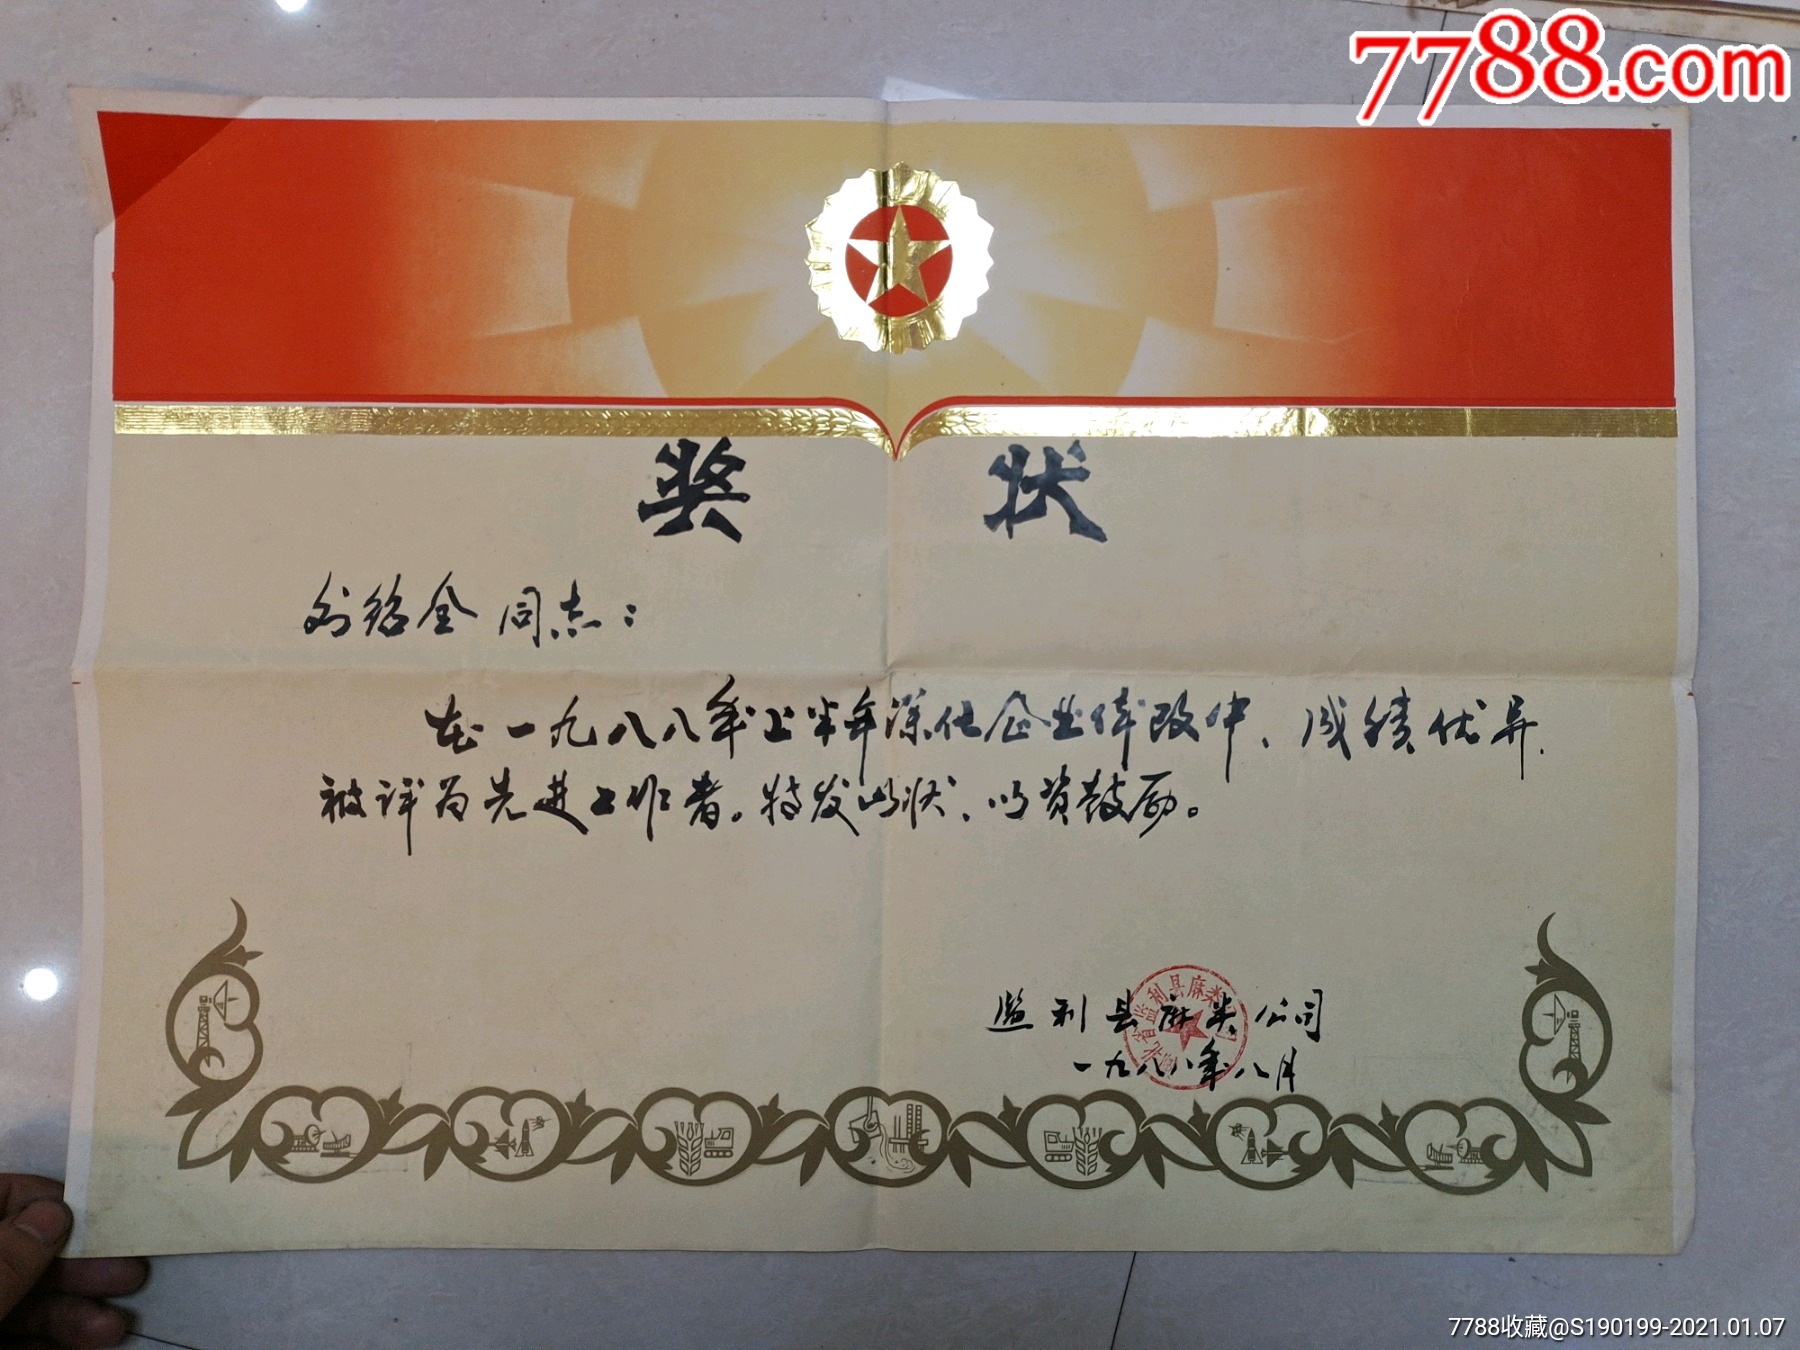 7788.com
奖状
刘绍全同志：
在一九八八年上半年深化企业体改中、成绩优异、
被评为先进工作者。特发此状、以资鼓励。
监利县麻类公司
一九八八年八月
7788收藏@S190199-2021.01.07